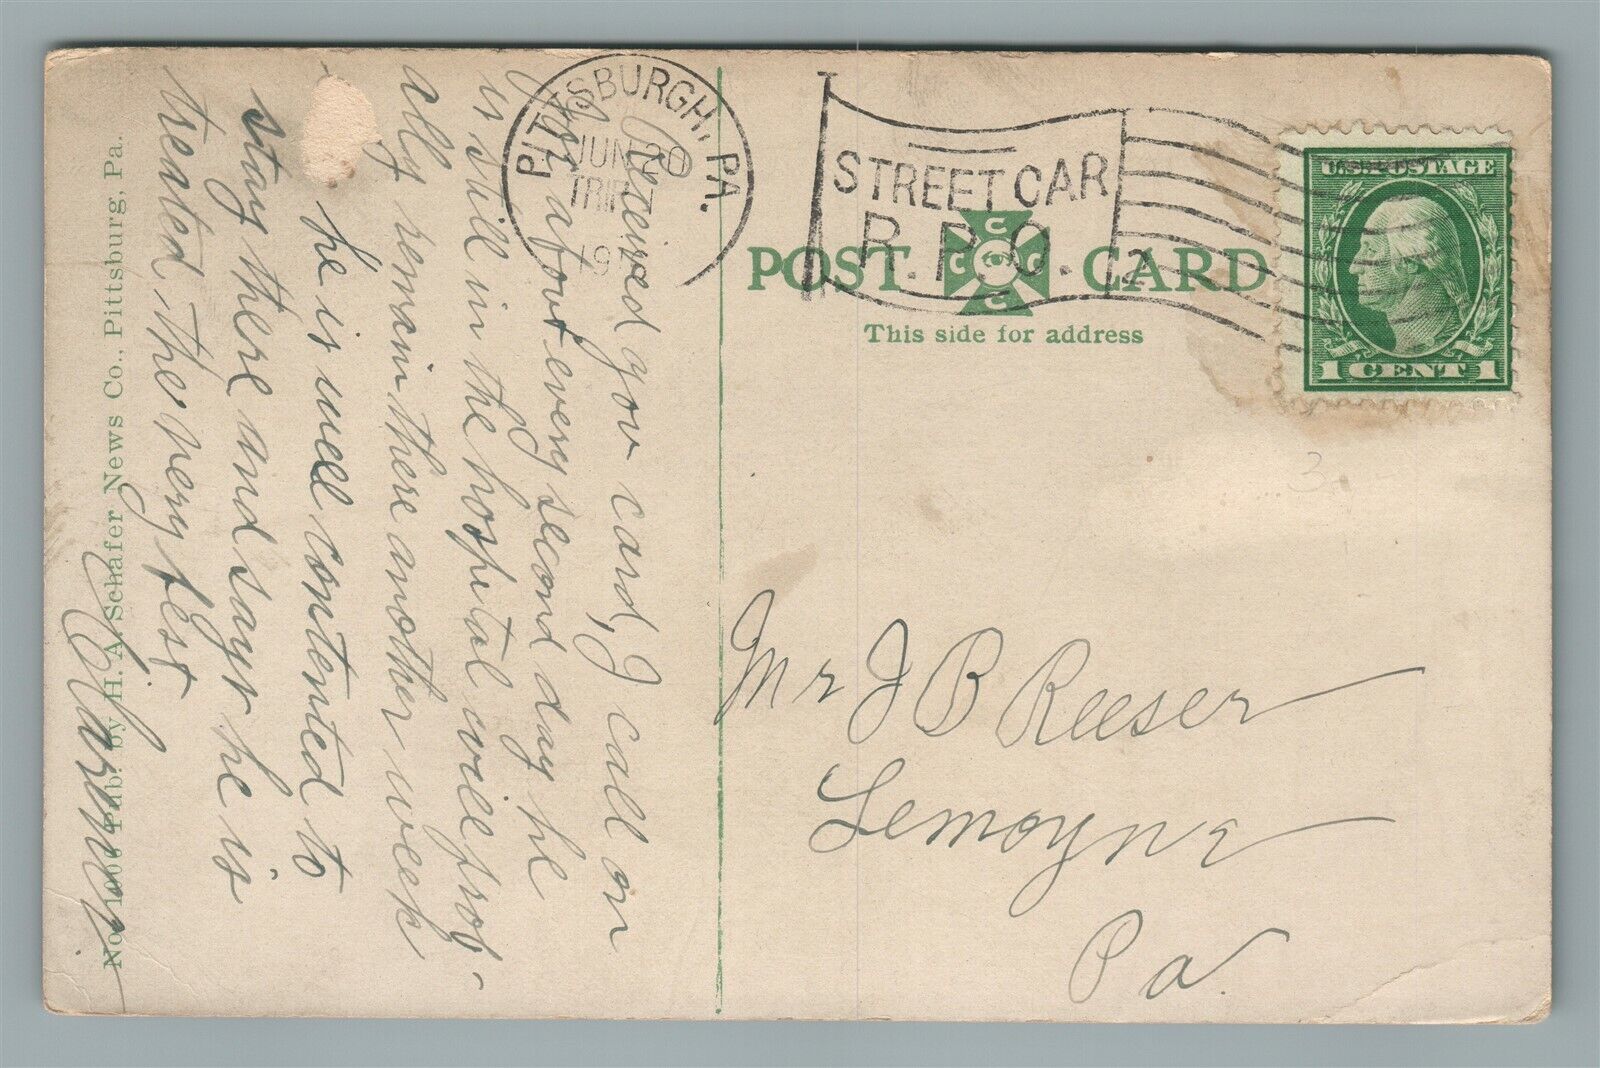 PITTSBURGH, PA.
JUN 20
TRIP
19
STREET CAR
R.P.O.
2
U.S. POSTAGE
1 CENT 1
POST CARD
C C C C
This side for address
Received you card, I call on
about every second day he
is still in the hospital will prob-
ally remain there another week
he is well contented to
stay there and says he is
treated the very best
Mr J B Reeser
Lemoyne
Pa.
3
No. 1006 Pub. by H. A. Schafer News Co., Pittsburg, Pa.